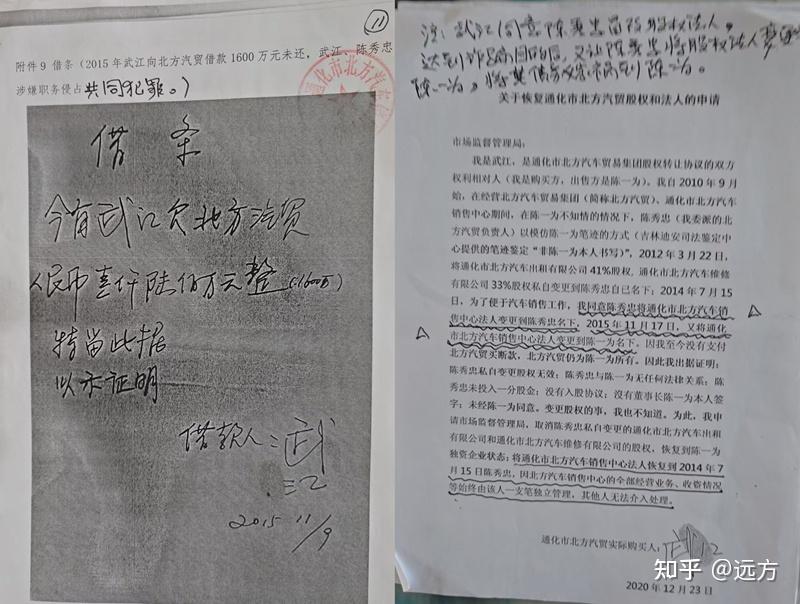 11
附件 9 借条（2015 年武江向北方汽贸借款 1600 万元未还，武江、陈秀忠
涉嫌职务侵占共同犯罪。）
借条
今有武江欠北方汽贸
人民币壹仟陆佰万元整（1600万）
特留此据
以示证明
借款人：武江
2015 11/9
注：武江同意陈秀忠冒改股权法人。
达到诈骗目的后，又让陈秀忠将股权法人变更
陈一为。将其债务转嫁到陈一为。
关于恢复通化市北方汽贸股权和法人的申请
市场监督管理局：
我是武江，是通化市北方汽车贸易集团股权转让协议的双方
权利相对人（我是购买方，出售方是陈一为）。我自 2010 年 9 月
始，在经营北方汽车贸易集团（简称北方汽贸）、通化市北方汽车
销售中心期间，在陈一为不知情的情况下，陈秀忠（我委派的北
方汽贸负责人）以模仿陈一为笔迹的方式（吉林迪安司法鉴定中
心提供的笔迹鉴定“非陈一为本人书写）”，2012 年 3 月 22 日，
将通化市北方汽车出租有限公司 41%股权，通化市北方汽车维修
有限公司 33%股权私自变更到陈秀忠自已名下；2014 年 7 月 15
日，为了便于汽车销售工作，我同意陈秀忠将通化市北方汽车销
售中心法人变更到陈秀忠名下，2015 年 11 月 17 日，又将通化
市北方汽车销售中心法人变更到陈一为名下。因我至今没有支付
北方汽贸买断款，北方汽贸仍为陈一为所有。因此我出据证明：
陈秀忠私自变更股权无效；陈秀忠与陈一为无任何法律关系；陈
秀忠未投入一分股金；没有入股协议；没有董事长陈一为本人签
字；未经陈一为同意。变更股权的事，我也不知道。为此，我申
请市场监督管理局，取消陈秀忠私自变更的通化市北方汽车出租
有限公司和通化市北方汽车维修有限公司的股权，恢复到陈一为
独资企业状态；将通化市北方汽车销售中心法人恢复到 2014 年 7
月 15 日陈秀忠，因北方汽车销售中心的全部经营业务、收资情况
等始终由该人一支笔独立管理，其他人无法介入处理。
通化市北方汽贸实际购买人：武江
2020 年 12 月 23 日
知乎 @远方